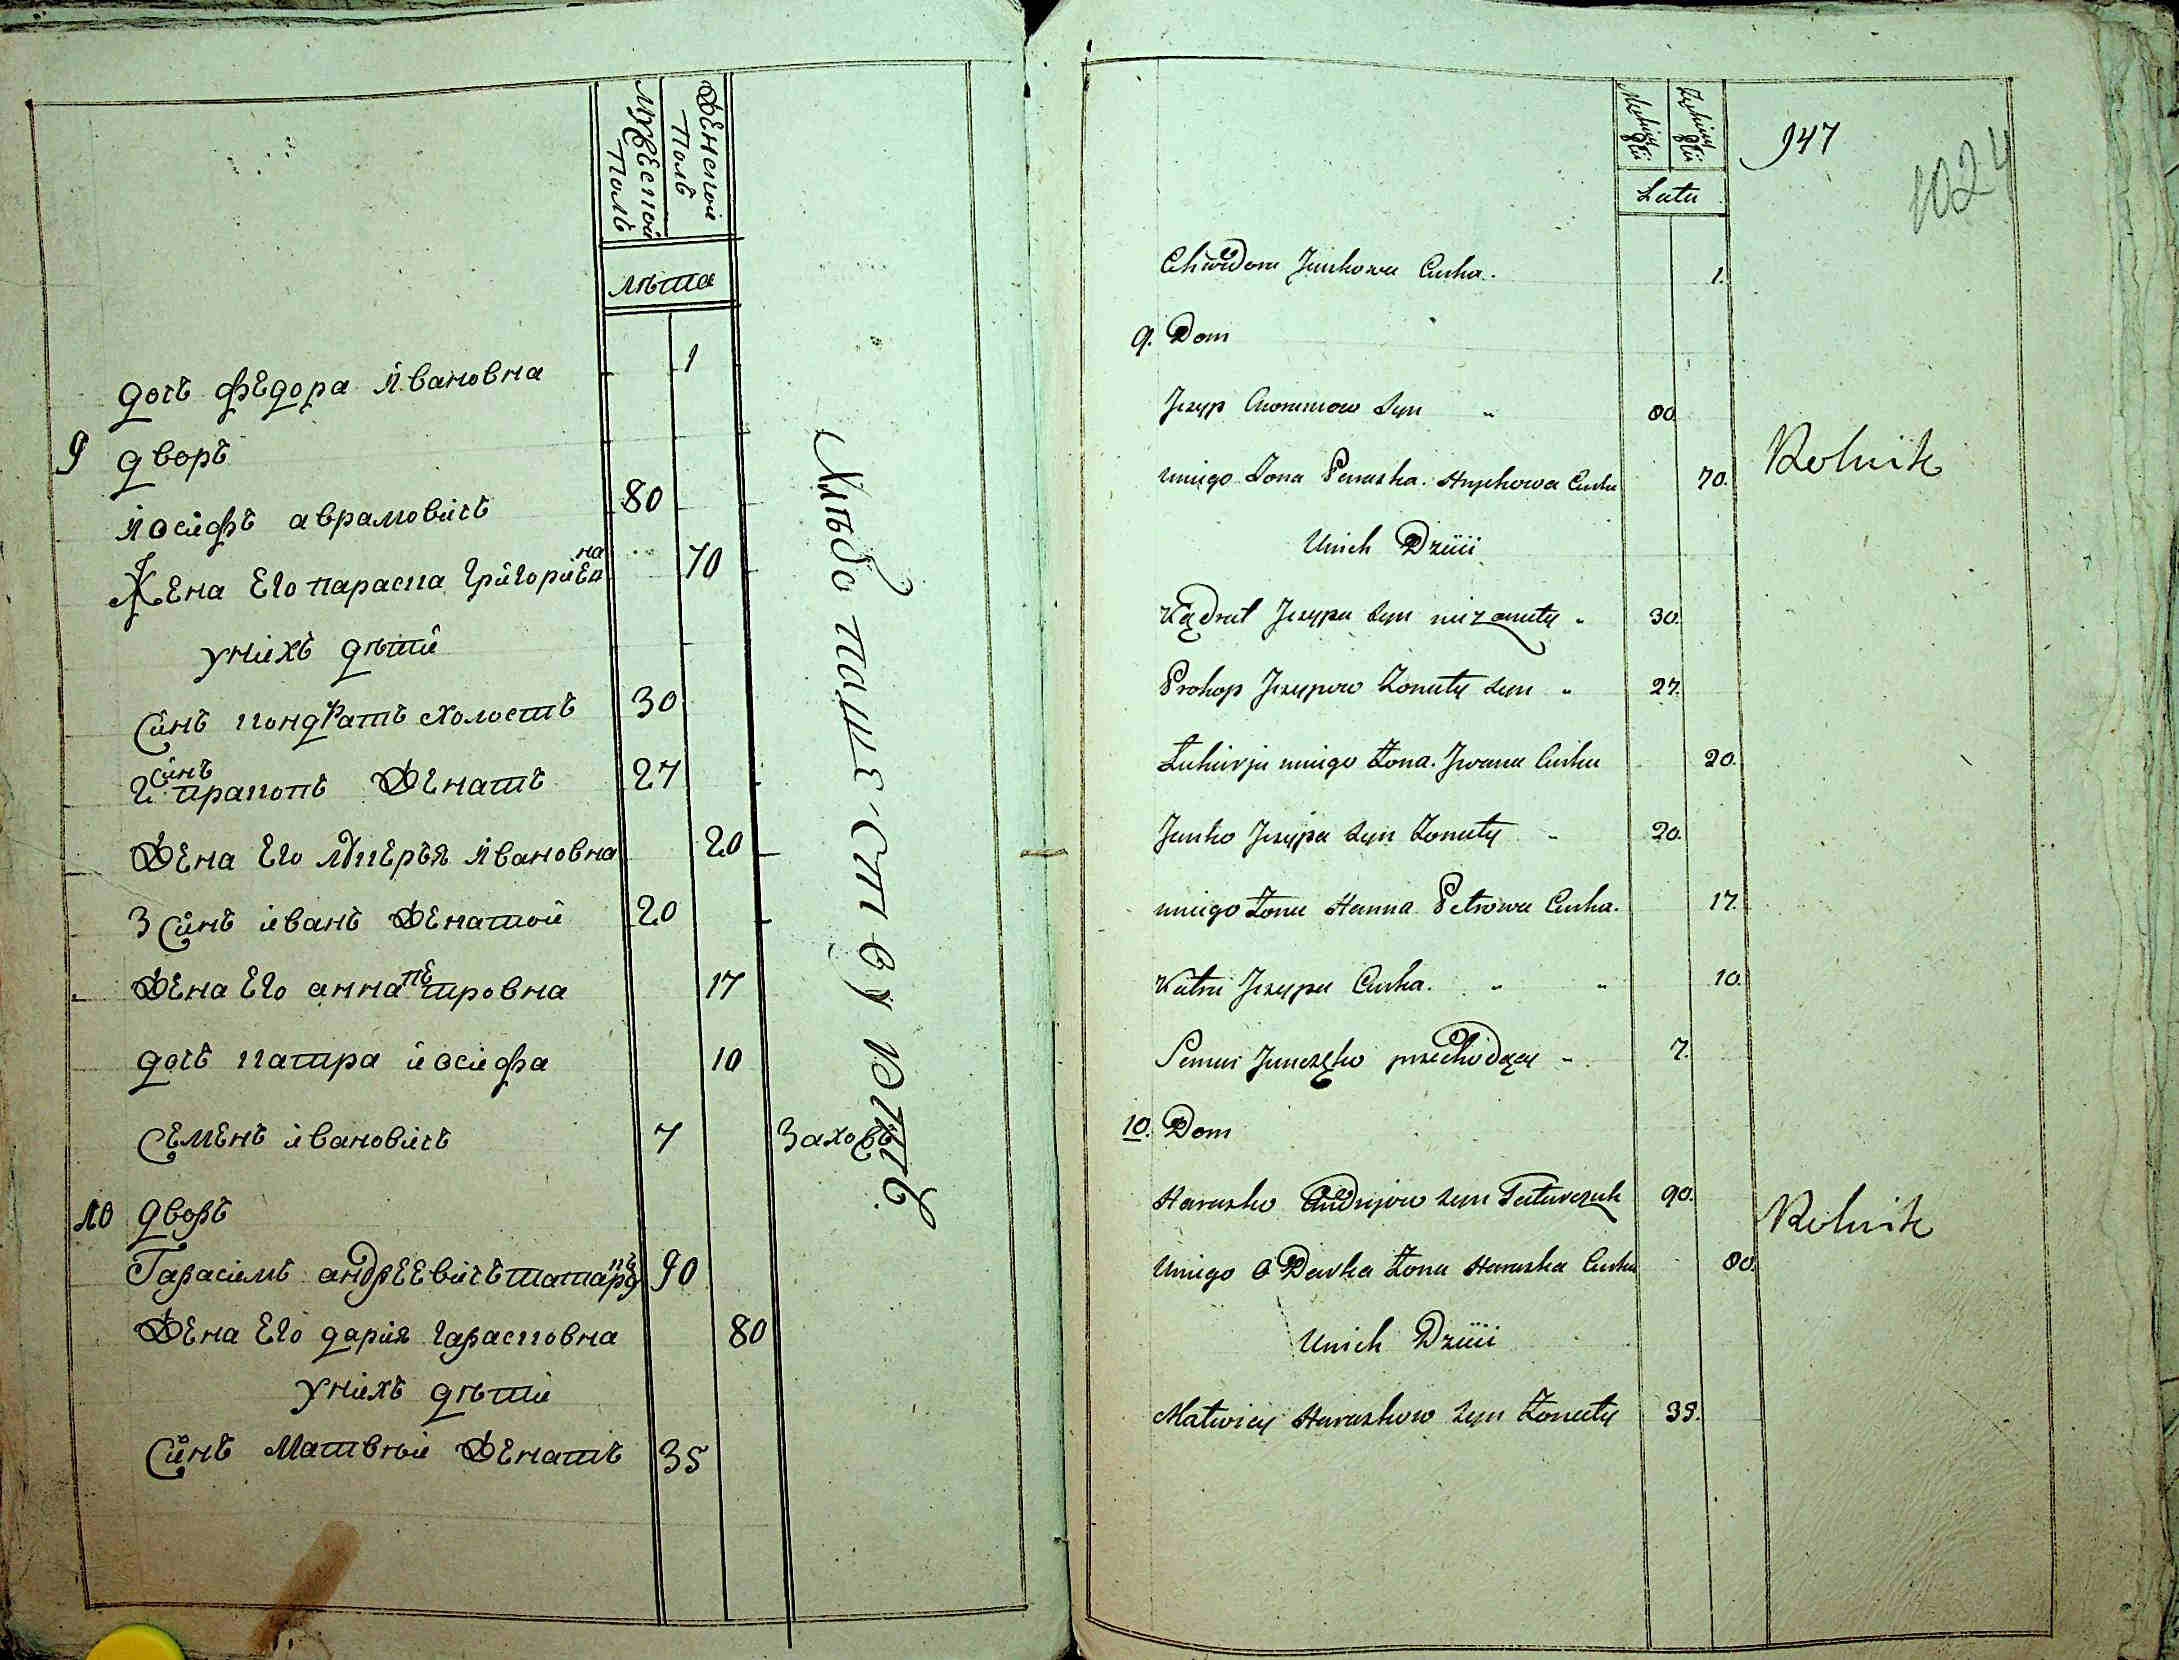 Мужескои Полъ
Женскои Полъ
лѣта
дочъ федора ивановна 1
9 дворъ
иосифъ аврамовичъ 80
Жена Его параска григориевна 70
у них дѣти
Синъ кондратъ холостъ 30
2 Синъ пракопъ Женатъ 27
Жена Его лукерья ивановна 20
3 Синъ иванъ Женатой 20
Жена Его анна петровна 17
дочъ катра иосифа 10
Семенъ ивановичъ 7 Заховъ
10 дворъ
Гарасимъ андреевичъ 90
Жена Его дария гарасковна 80
у них дѣти
Синъ Матвѣй Женатъ 35
Хлѣбопашествуютъ
Mezkiey Płci
Zenskiey Płci
Latu
947
1024
Chwedora Jankowa Curka. 1.
9. Dom
Jezyp Awramow Syn 80
uniego Zona Paraska. Hryhowa Curka 70. Rolnik
Unich Dzieci
Kądrat Jezypa Syn niezonaty 30.
Prokop Jezypow Zonaty Syn 27.
Łukierja uniego Zona. Jwana Curka 20.
Janko Jezypa Syn Zonaty 20.
uniego Zona Hanna Petrowa Curka. 17.
Katra Jezypa Curka. 10.
Semen przechodzący 7.
10. Dom
Harasko Andrijow Syn Tatarczuk 90. Rolnik
Uniego Odarka Zona Haraska Curka 80.
Unich Dzieci
Matwiey Haraskow Syn Zonaty 35.